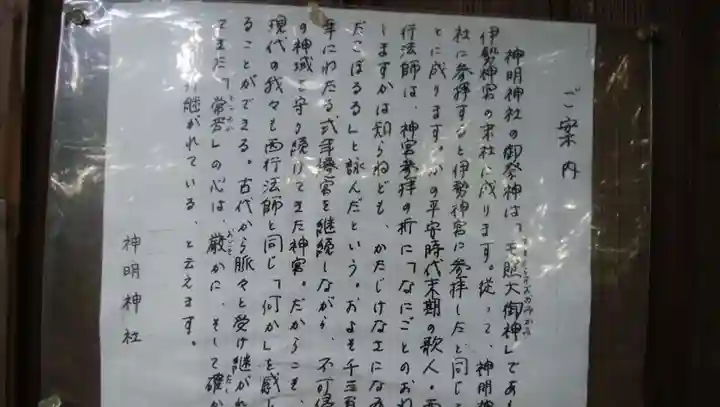 ご案内
神明神社の御祭神は、「天照大御神」であ
伊勢神宮の末社に成ります。従って、神明神
社に参拝すると伊勢神宮に参拝したと同じこ
とに成ります。かの平安時代末期の歌人・西
行法師は、神宮参拝の折に「なにごとのおわ
しますかは知らねども、かたじけなさになみ
だこぼるる」と詠んだという。およそ千三百
年にわたる式年遷宮を継続しながら、不可侵
の神域を守り続けてきた神宮。だからこそ、
現代の我々も西行法師と同じ「何か」を感じ
ることができる。古代から脈々と受け継がれ
てきた「常若」の心は、厳かに、そして確か
継がれている、と云えます。
神明神社